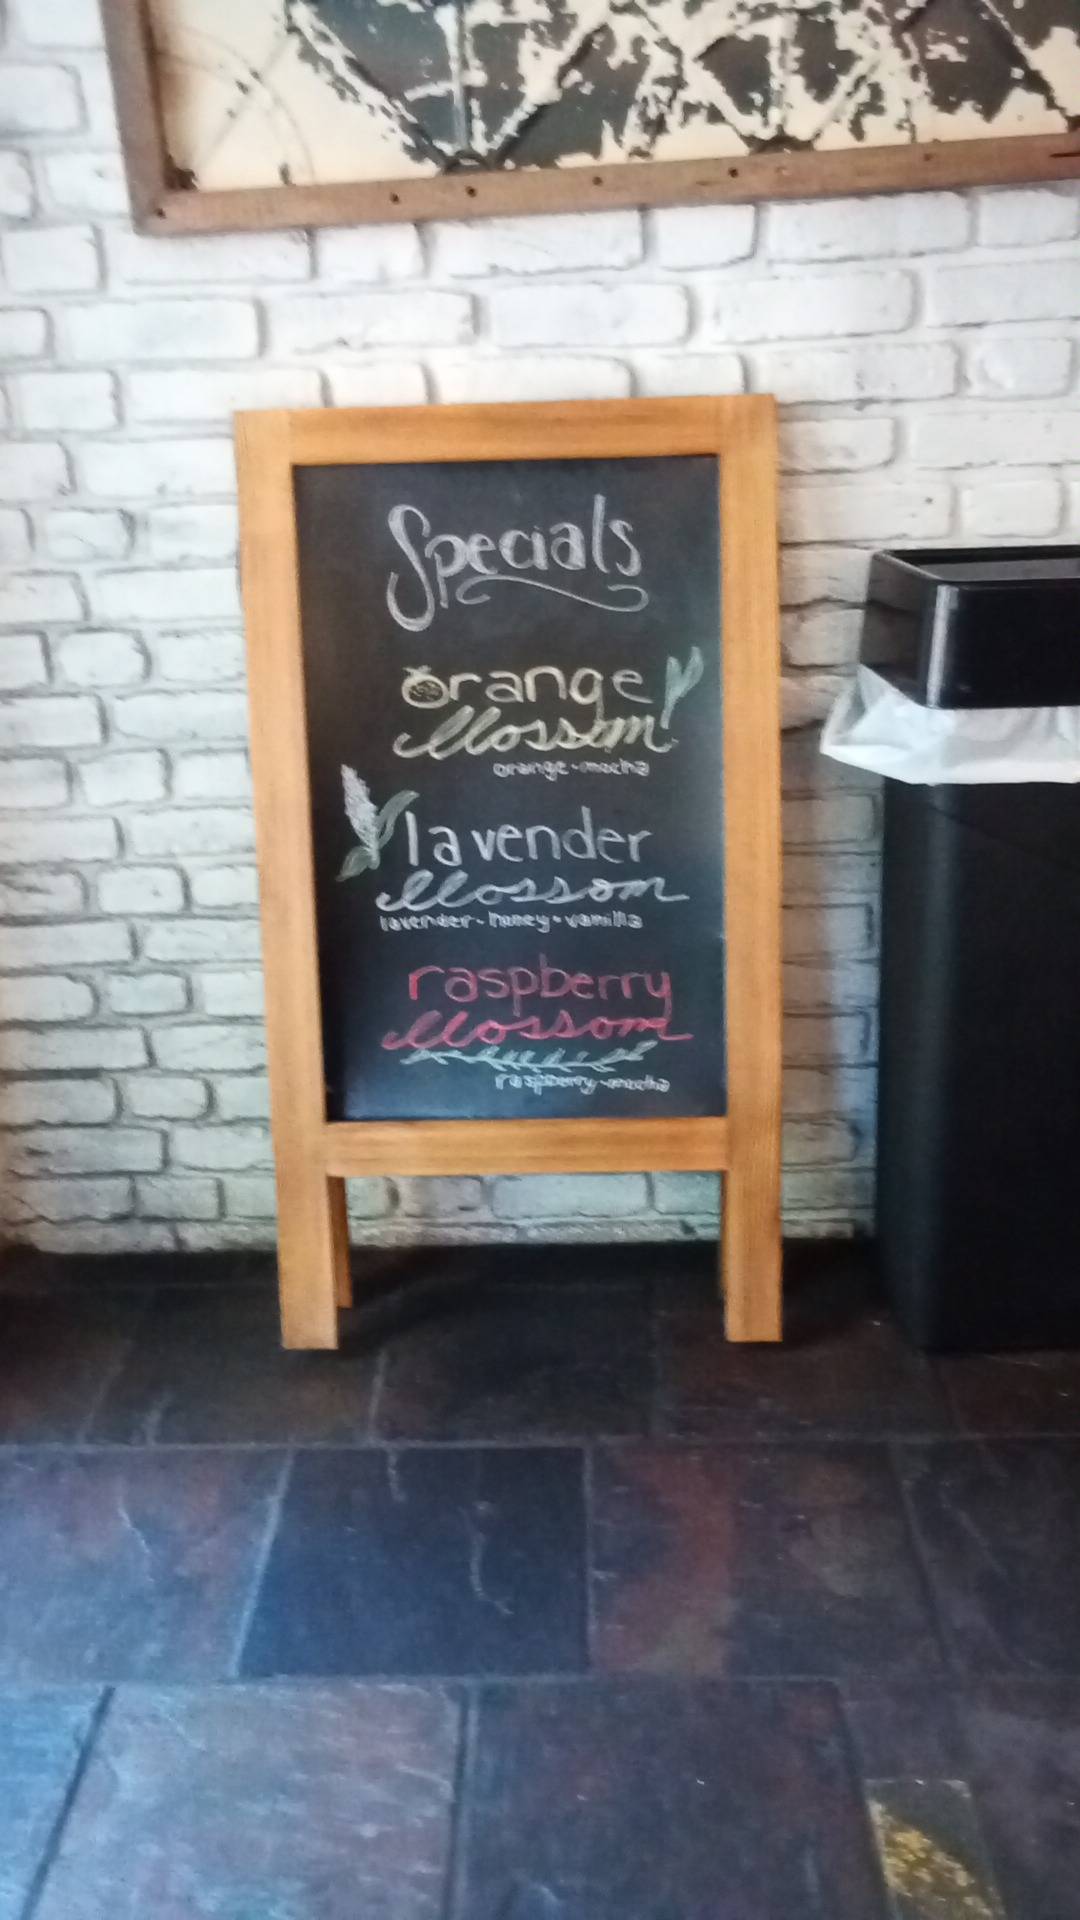 Specials
orange
blossom
orange-mocha
lavender
blossom
lavender-honey-vanilla
raspberry
blossom
raspberry-mocha